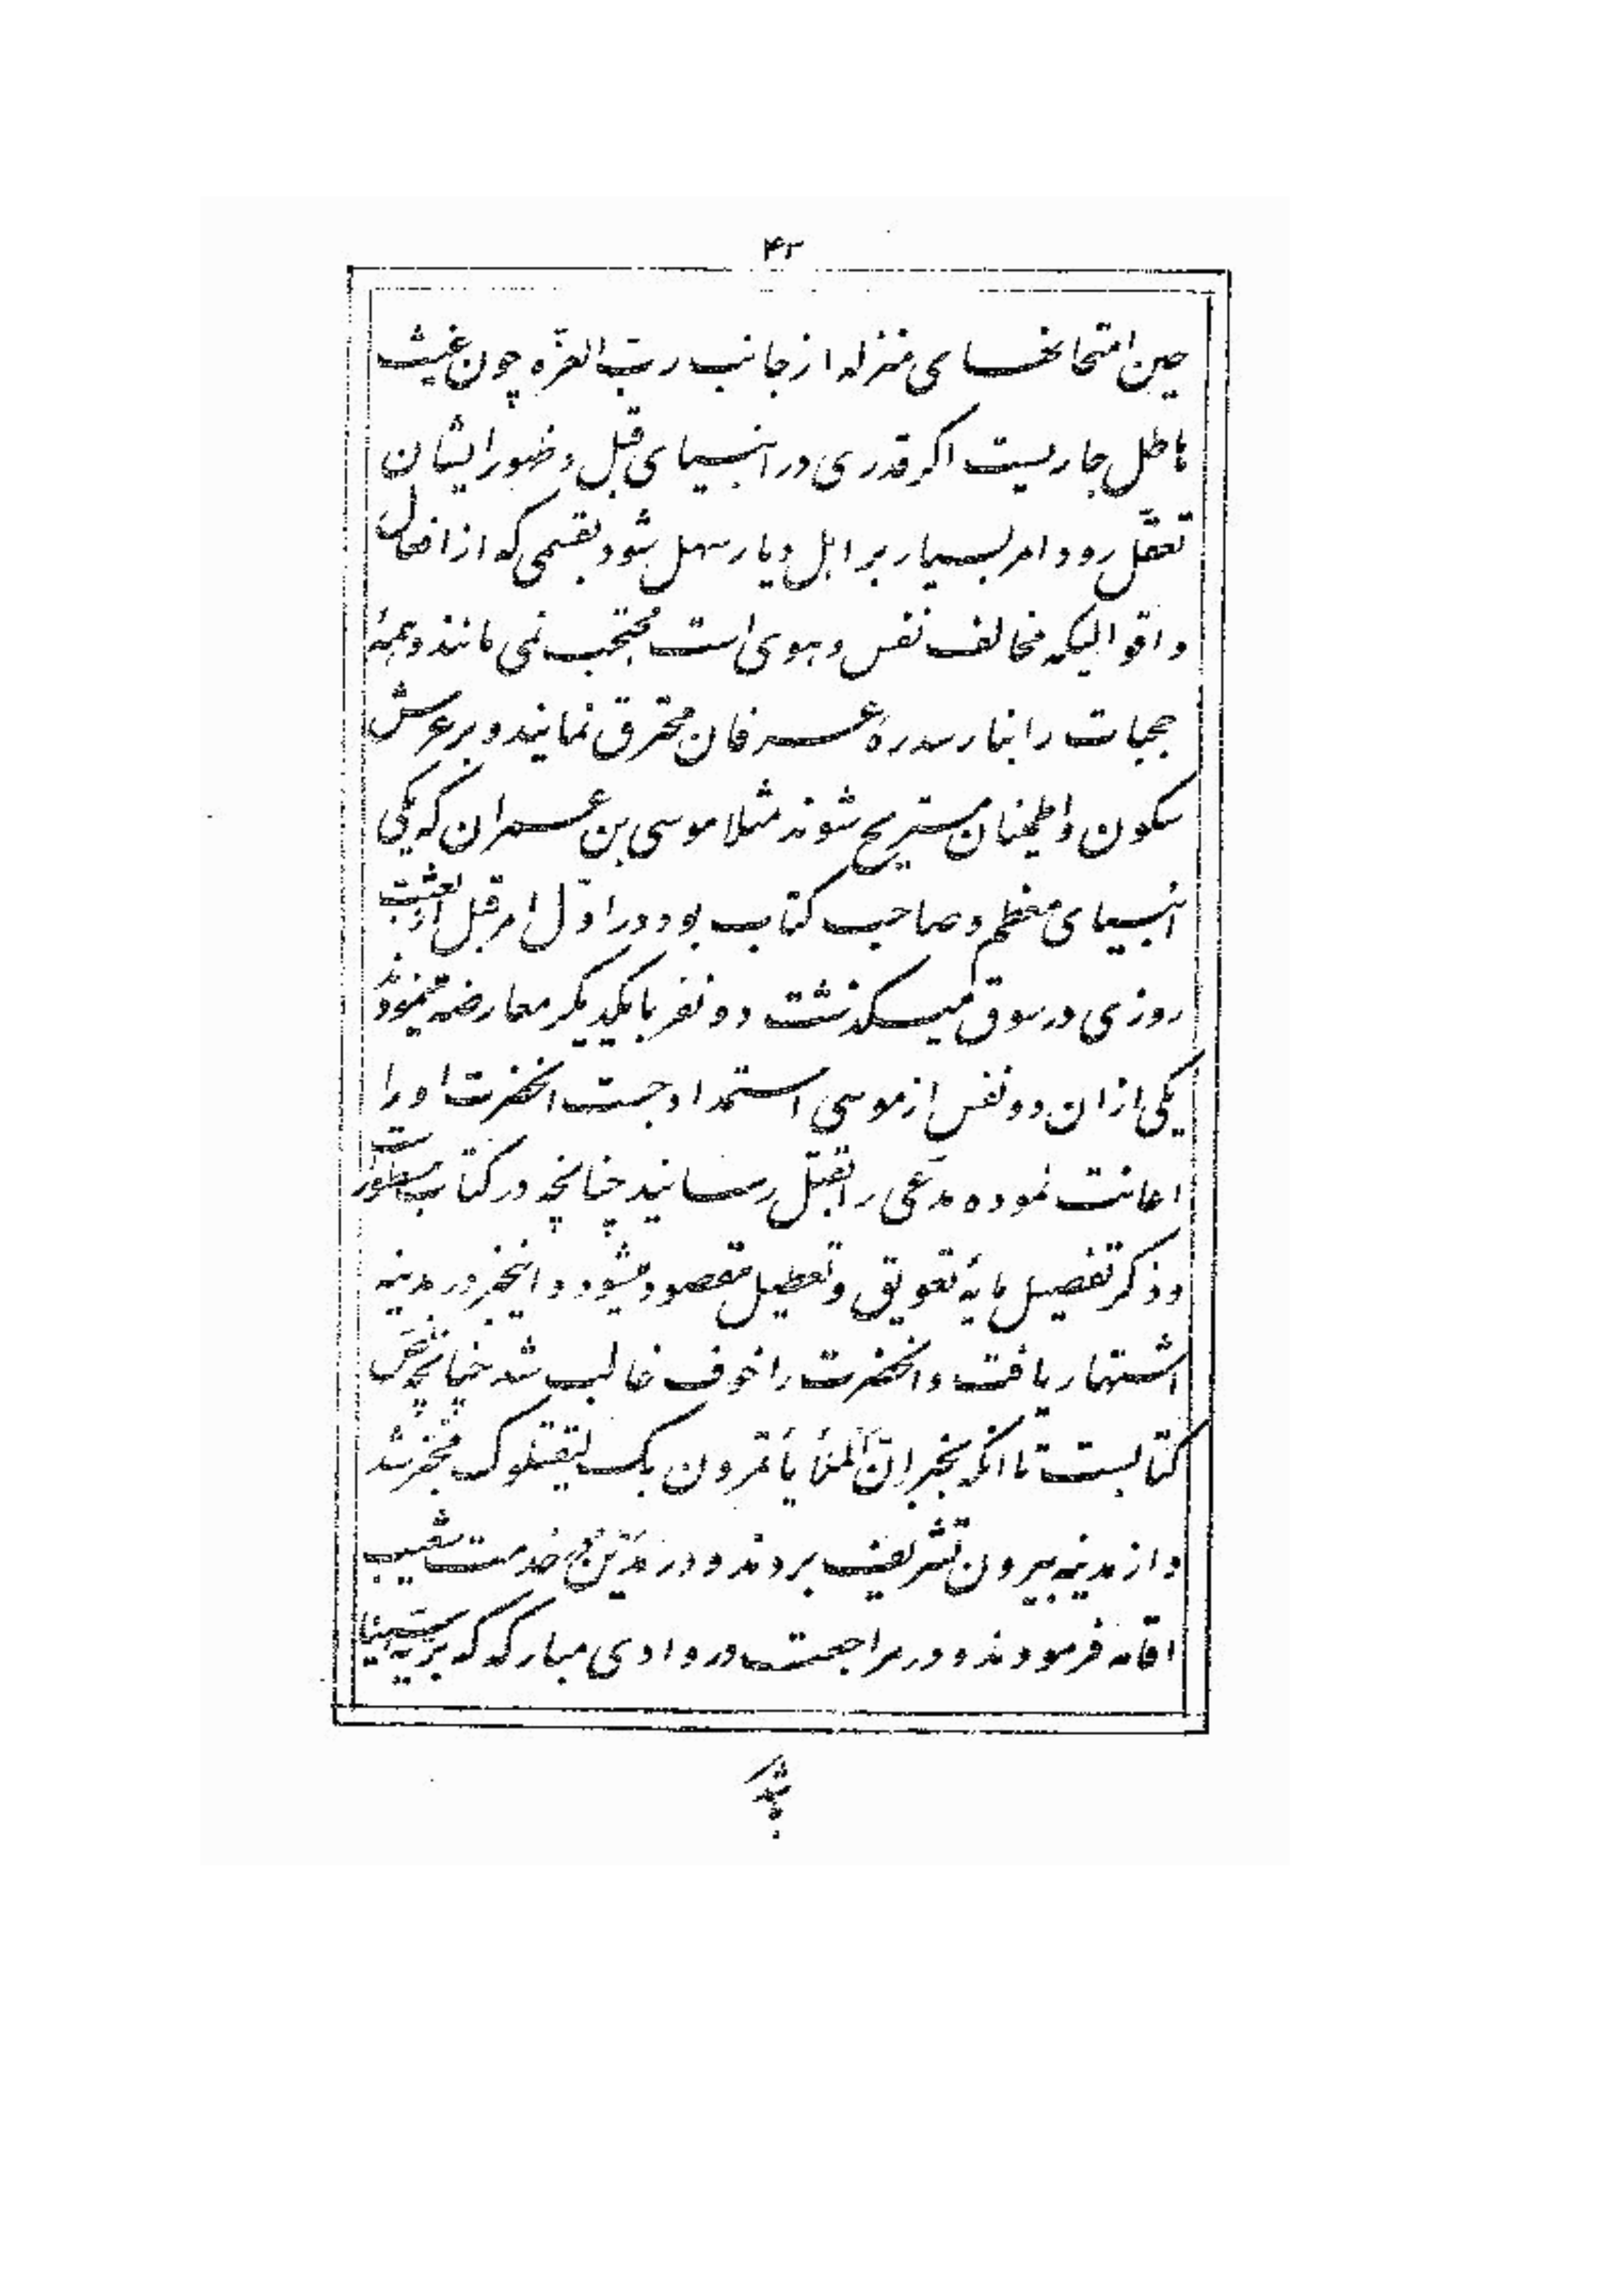 ۴۲
حین امتحانهای منزله از جانب ربّ العزّه چون غیث
هاطل جاریست اکر قدری در انبیای قبل و ظهور ایشان
تعقّل رود امر بسیار بر اهل دیار سهل شود بقسمی که از افعال
و اقوالیکه مخالف نفس و هوی است محتجب نمی مانند و همهٔ
حجبات را بنار سدرهٔ عرفان محترق نمایند و بر عرش
سکون و اطمینان مستریح شوند مثلا موسی بن عمران که یکی
انبیای معظم و صاحب کتاب بود در اوّل امر قبل از بعثت
روزی در سوق میکذشت دو نفر با یکدیکر معارضه مینمودند
یکی از ان دو نفس از موسی استمداد جست انحضرت او را
اعانت نموده مدّعی را بقتل رسانید چنانچه در کتاب مسطور است
و ذکر تفصیل مایهٔ تعویق و تعطیل مقصود میشود و اینخبر در مدینه
اشتهار یافت و انحضرت را خوف غالب شد چنانچه نصّ
کتابست تا انکه بخبر اِنّ الْمَلَأَ یَأتَمِرون بِکَ لیَقتلوک مخبر شد
و از مدینه بیرون تشریف بردند و در مَدْیَن در خدمت شعیب
اقامه فرمودند و در مراجعت در وادی مبارکه که برّیّهٔ سینا
باشد